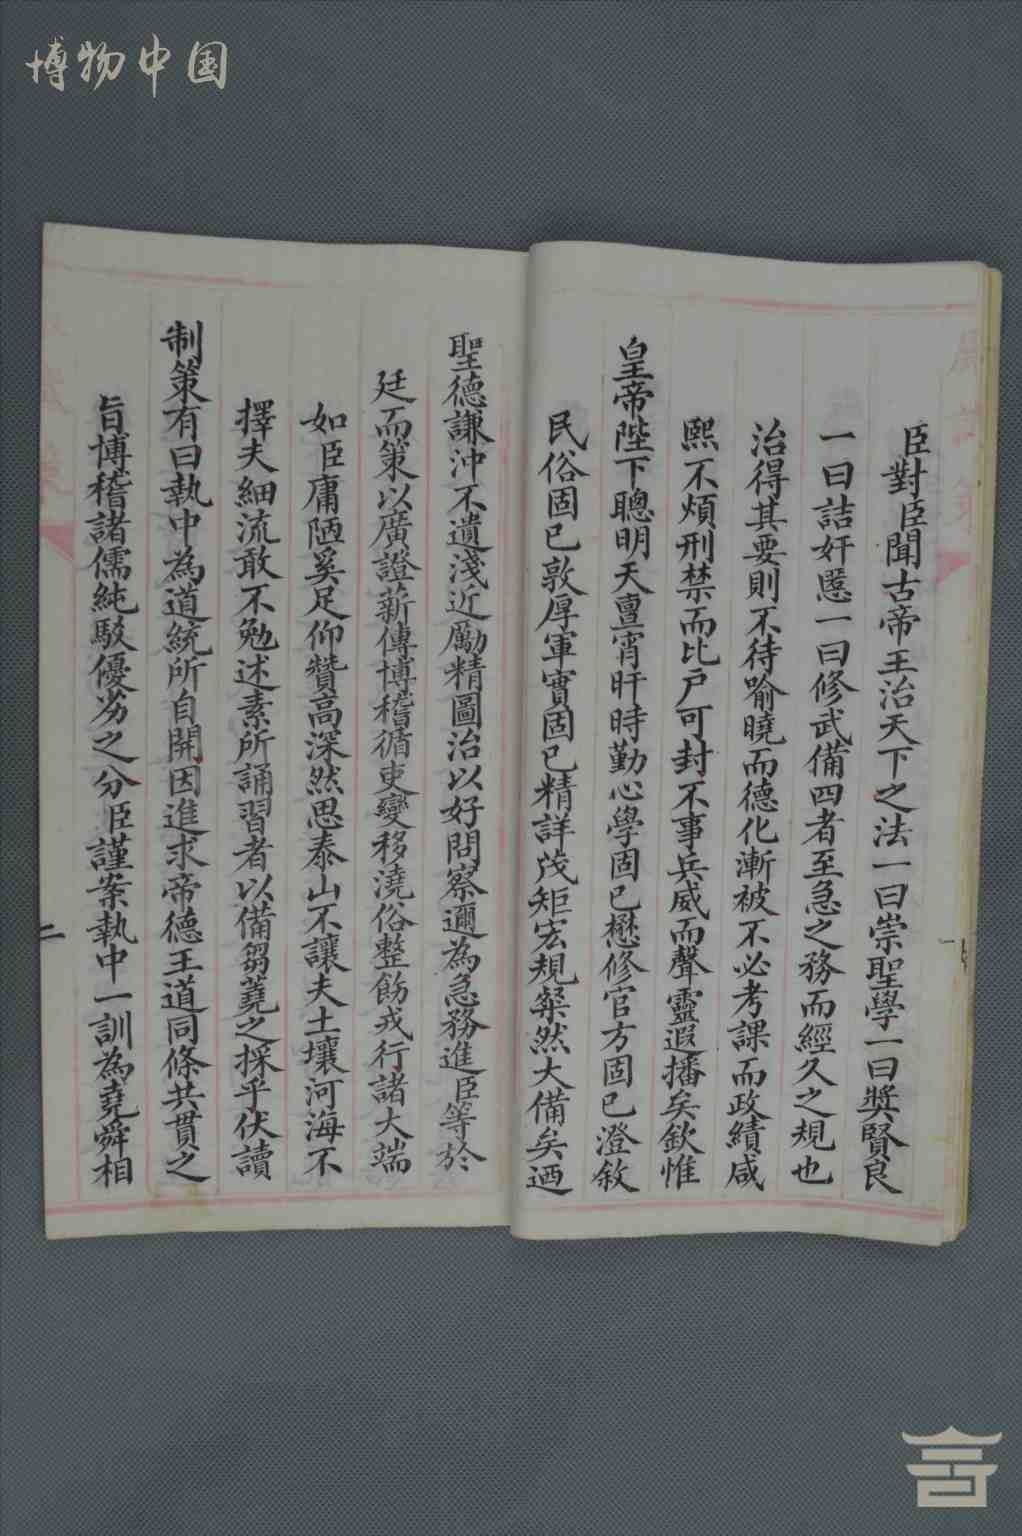 博物中国
臣對臣聞古帝王治天下之法一曰崇聖學一曰獎賢良
一曰詰奸慝一曰修武備四者至急之務而經久之規也
治得其要則不待喻曉而德化漸被不必考課而政績咸
熙不煩刑禁而比戶可封不事兵威而聲靈遐播矣欽惟
皇帝陛下聰明天亶宵旰時勤心學固已懋修官方固已澄敘
民俗固已敦厚軍實固已精詳茂矩宏規粲然大備矣迺
聖德謙沖不遺淺近勵精圖治以好問察邇為急務進臣等於
廷而策以廣證薪傳博稽循吏變移澆俗整飭戎行諸大端
如臣庸陋奚足仰贊高深然思泰山不讓夫土壤河海不
擇夫細流敢不勉述素所誦習者以備芻蕘之採乎伏讀
制策有曰執中為道統所自開因進求帝德王道同條共貫之
旨博稽諸儒純駁優劣之分臣謹案執中一訓為堯舜相
二